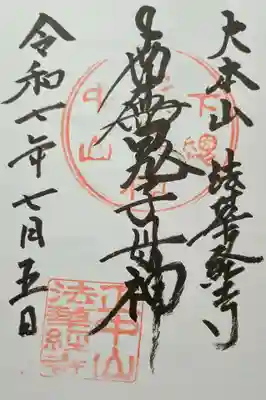 大本山 法華経寺
南無鬼子母神
令和七年七月五日
下総
中山
正中山
法華経寺